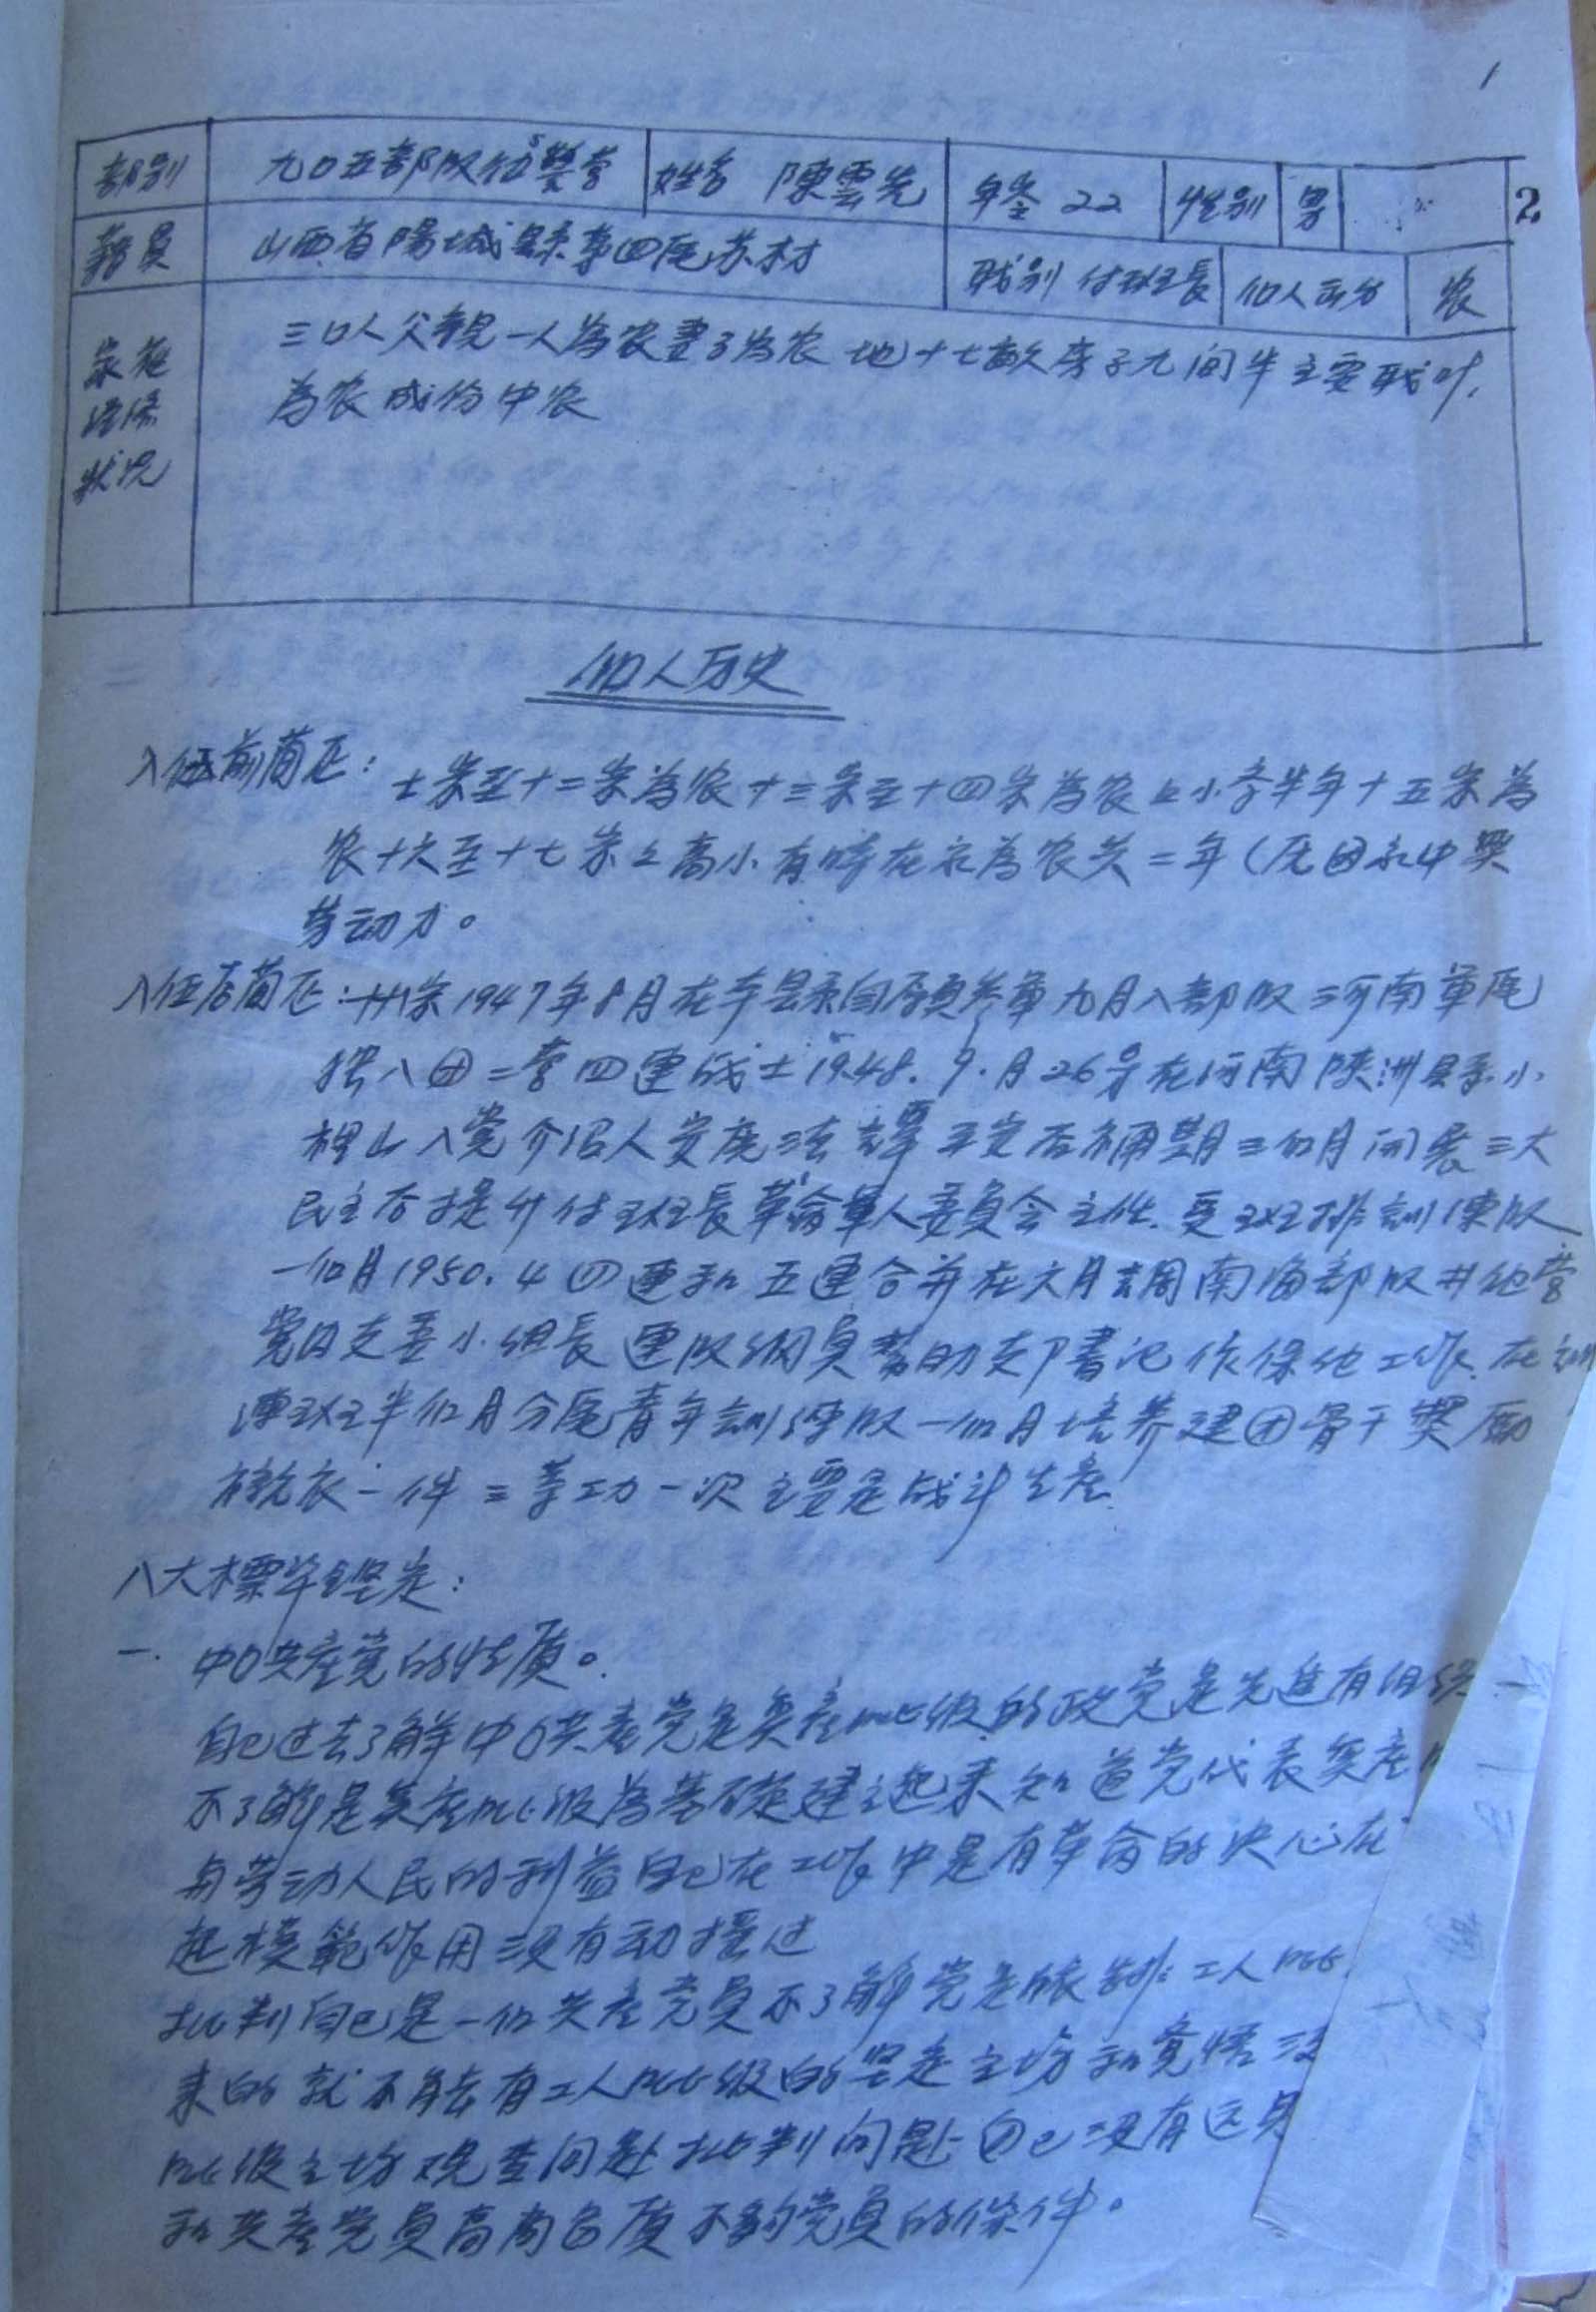 1
部别 九〇五部队伍警营 姓名 陳雲先 年令 22 性别 男
2
籍貫 山西省陽城县第四区苏村 职别 付班長 个人成分 农
家庭 三口人父親一人為农妻子為农 地十七亩房子九间半主要职业
经济 為农成份中农
状况
个人历史
入伍前简历: 七岁至十二岁為农十三岁至十四岁為农上小学半年十五岁為
农十六至十七岁上高小有時在家為农共二年(原因家中無
劳动力。
入伍后简历:十八岁1947年8月在本县自願参軍九月入部队河南軍区
拾八团二营四連战士1948.9.月26号在河南陕洲县小
山入党介绍人安 譚 平安后補期三个月 三大
民主后提升付班長革命軍人委員会主任. 受班排訓練队
一个月1950.4四連和五連合并在六月 南海部队 他营
党内支委小组長連队網員幫助支部書記作保他工作.在訓
練班半个月分区青年訓練队一个月培养建团骨干奬励
衣一件三等功一次主要是战斗生産
八大標準鉴定:
一. 中〇共産党的性质。
自己过去了解中〇共産党是無産阶级的政党是先進有组织
不了解是無産阶级為基礎建立起来知道党代表無産
与劳动人民的利益自己在工作中是有革命的决心在
起模範作用没有动摇过
批判自己是一个共産党員不了解党是依 工人阶
来的就不能有工人阶级的坚定立场和覚悟没
阶级立场观查问题批判问题自己没有远見
和共産党員高尚品质不够党員的條件。